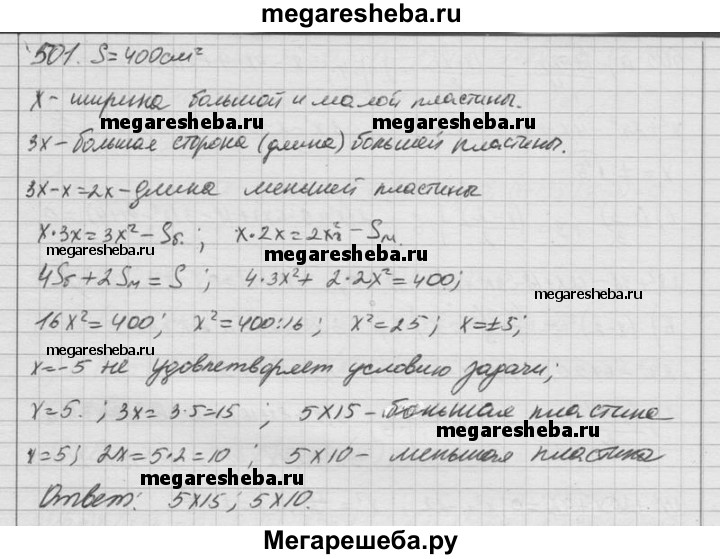 megaresheba.ru
501. S=400см²
x - ширина большой и малой пластины.
megaresheba.ru megaresheba.ru
3x - большая сторона (длина) большей пластины.
3x-x=2x - длина меньшей пластины
x·3x=3x² - Sб. ; x·2x=2x² - Sм.
megaresheba.ru megaresheba.ru
4Sб+2Sм=S ; 4·3x²+2·2x²=400;
megaresheba.ru
16x²=400; x²=400:16; x²=25; x=±5;
megaresheba.ru
x=-5 не удовлетворяет условию задачи;
x=5. ; 3x=3·5=15 ; 5x15 - большая пластина
megaresheba.ru megaresheba.ru
x=5; 2x=5·2=10 ; 5x10 - меньшая пластина
Ответ: 5x15; 5x10.
Мегарешеба.ру